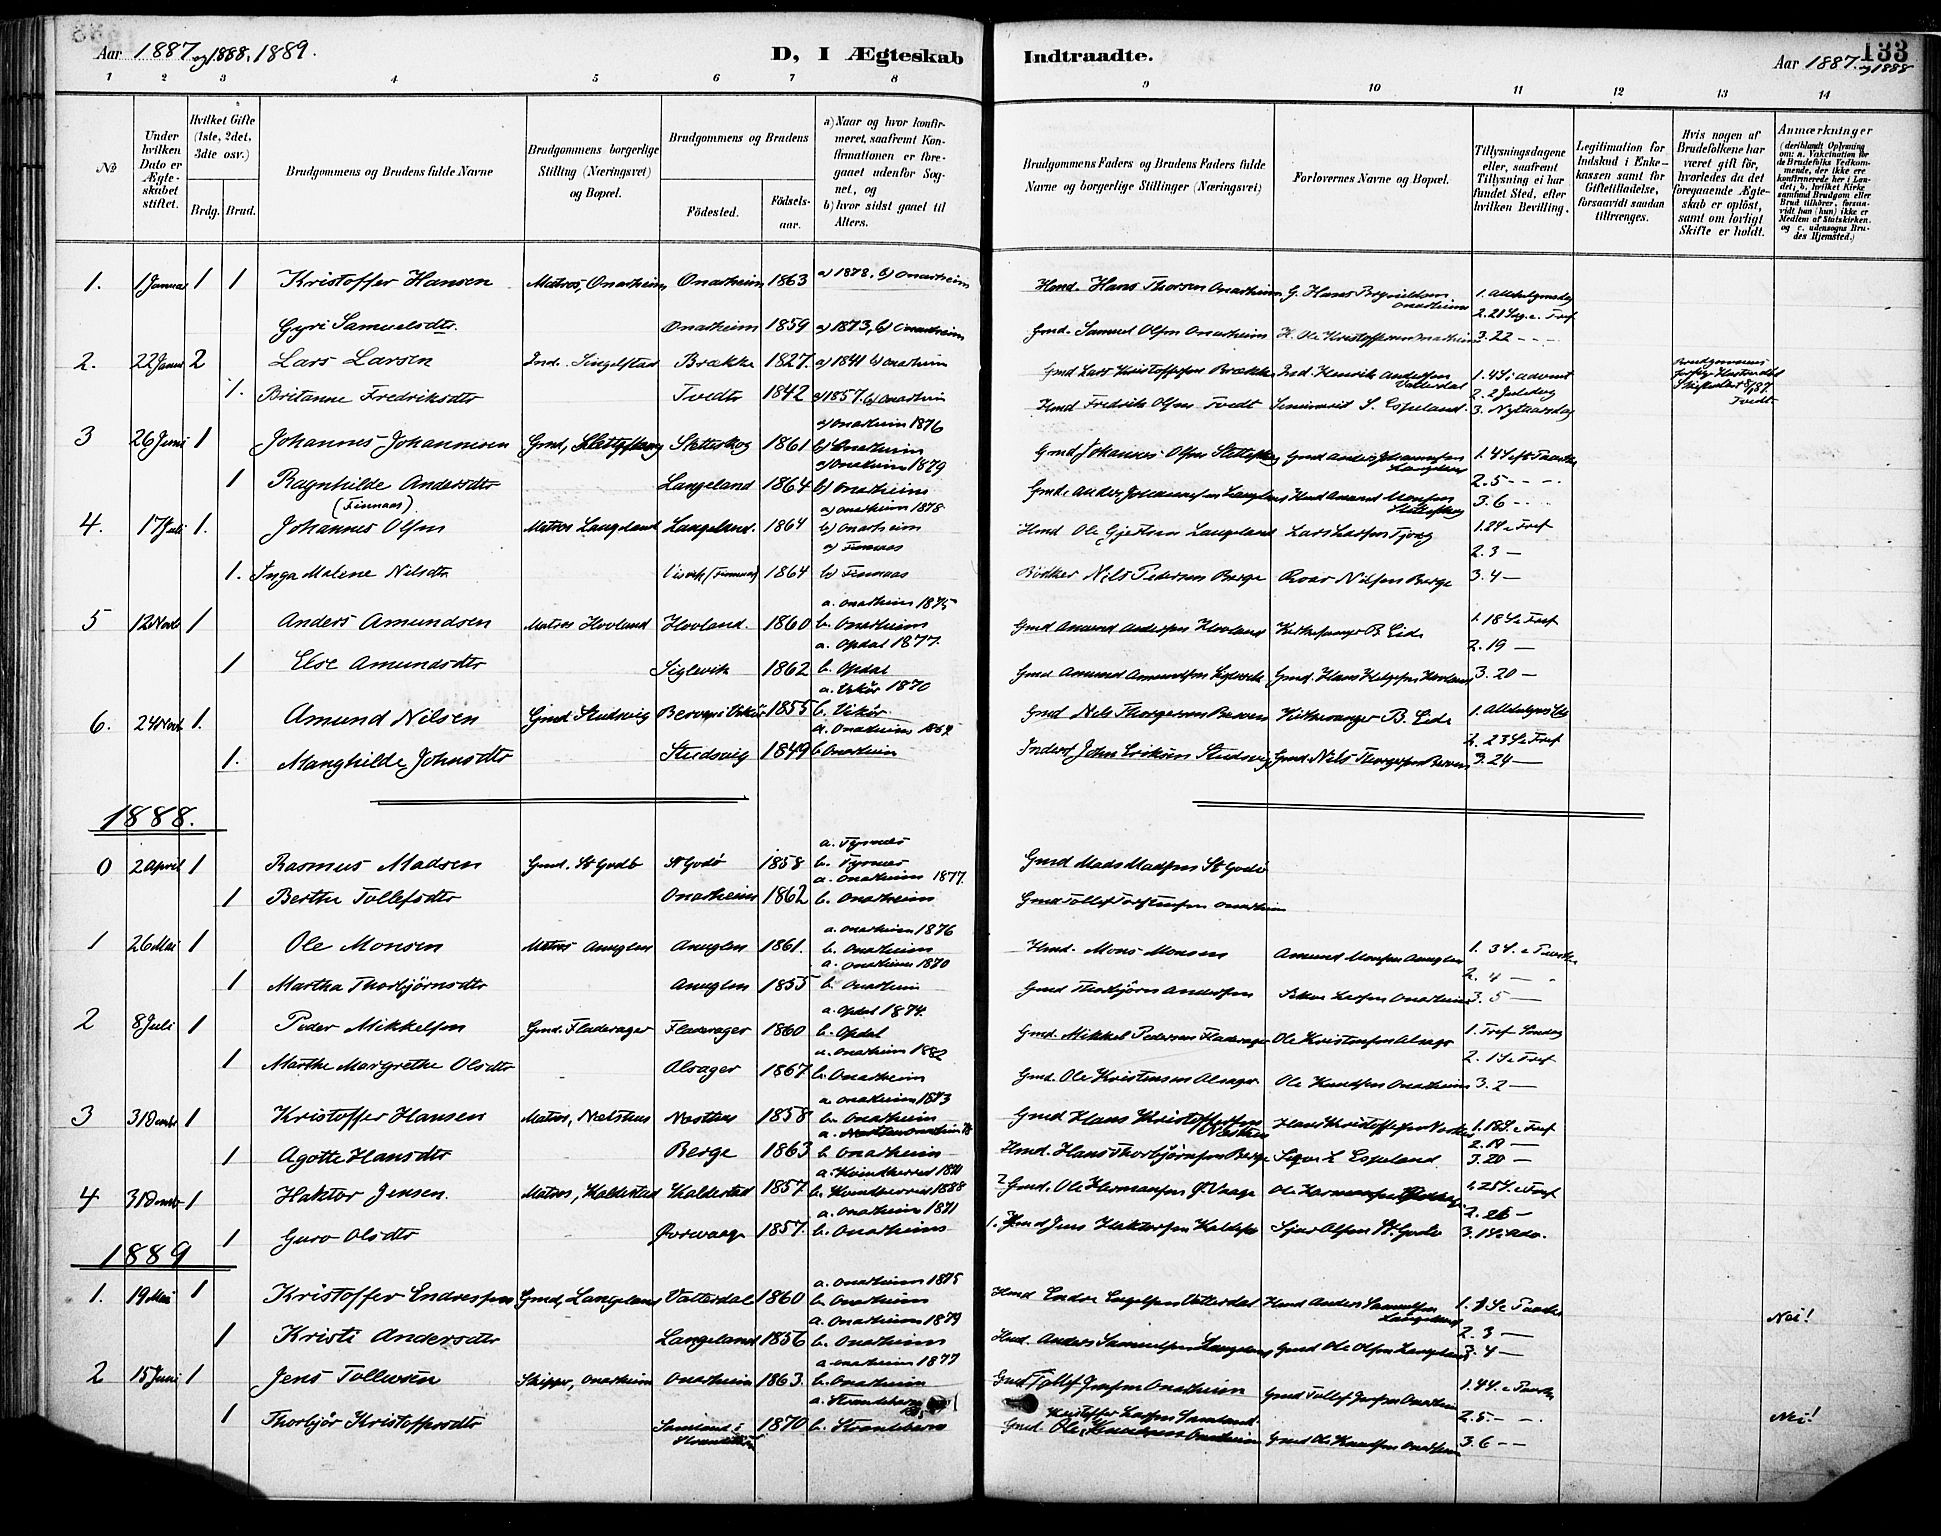 Aar 1887 og 1888, 1889.
D, I Ægteskab Indtraadte.
133
Aar 1887 og 1888
1 2 3 4 5 6 7 8 9 10 11 12 13 14
№
Under hvilken Dato er Ægteskabet stiftet.
Hvilket Gifte (1ste, 2det, 3die osv.)
Brdg. Brud.
Brudgommens og Brudens fulde Navne
Brudgommens borgerlige Stilling (Næringsvei) og Bopæl.
Brudgommens og Brudens
Födested.
Födselsaar.
a) Naar og hvor konfirmeret, saafremt Konfirmationen er foregaaet udenfor Sognet, og
b) hvor sidst gaaet til Alters.
Brudgommens Faders og Brudens Faders fulde Navne og borgerlige Stillinger (Næringsvei)
Forlovernes Navne og Bopæl.
Tillysningsdagene eller, saafremt Tillysning ei har fundet Sted, efter hvilken Bevilling.
Legitimation for Indskud i Enkekassen samt for Giftetilladelse, forsaavidt saadan tiltrænges.
Hvis nogen af Brudefolkene har været gift för, hvorledes da det foregaaende Ægteskab er oplöst, samt om lovligt Skifte er holdt.
Anmærkninger (deriblandt Oplysning om: a. Vakcination for de Brudefolks Vedkommende, der ikke ere konfirmerede her i Landet; b. hvilket Kirkesamfund Brudgom eller Brud tilhörer, forsaavidt han (hun) ikke er Medlem af Statskirken, og c. udensogns Brudes Hjemsted.)
1. 1 Januar 1 1 Kristoffer Hansen Matros, Onarheim Onarheim 1863 a) 1878, b) Onarheim Hmd. Hans Thorsen Onarheim
Gyri Samuelsdtr. Onarheim 1859 a) 1873, b) Onarheim Gmd. Samuel Olsen Onarheim H. Ole Kristoffersen Onarheim 3. 22 - - -
2. 22 Januar 2 Lars Larsen Ind. Singelstad Brække 1827. a) 1841 b) Onarheim Gmd Lars Kristoffersen Brække Ind. Henrik Andersen Vatterdal 1. 4 S i Advent
1. Britanne Fredriksdtr Tvedt 1842 a) 1857. b) Onarheim Hmd Fredrik Olsen Tvedt Seminarist S. Espeland. 2. 2 Juledag 3. Nytaarsdag
3 26 Juni 1 Johannes Johannesen Gmd, Sletteskog Sletteskog 1861 a) Onarheim 1876 b) Onarheim Gmd Johannes Olsen Sletteskog Gmd Anders Johannessen Langeland
1 Ragnhilde Andersdtr Langeland 1864 a) Onarheim 1879 b) Onarheim 2. 5 - - - 3. 6 - -
(Finnaas)
4. 17 Juli 1. Johannes Olsen Matros Langeland Langeland. 1864 a) Onarheim 1878 b) Onarheim Hmd Ole Gjertsen Langeland Lars Larsen 2. 3 —
1. Inga Malene Nilsdtr (Finnaas) 1864 a) Finnaas b) Finnaas Bödker Nils Pedersen Berge Roar Nilsen Berge 3. 4 —
5 12 Novb 1 Anders Amundsen Matros Hovland Hovland. 1860 a. Onarheim 1875 b. Onarheim Gmd Amund Andersen Hovland Kirkesanger B. Eide 1. 18 S e Tref 2. 19 —
1 Else Amundsdtr Siglevik 1862 a. Opdal 1877. b. Opdal Gmd Amund Amundsen Siglevik Gmd. Hans Helgesen Hovland 3. 20 —
6. 24 Novb 1. Amund Nilsen Gmd. Studsvig 1855 a. Vikör 1870 b. Vikör Gmd Nils Thorgersen Berven Kirkesanger B. Eide
1. Manghilde Johnsdtr Studsvig 1849 b Onarheim Inderst John Eriksen Studsvig Gmd. Nils Thorgersen Berven 2. 23 S e Tref 3. 24 —
1888.
0 2 April 1 Rasmus Madsen Gmd. St Godö St Godö 1858 a. Tysnes b. Tysnes Gmd Mads Madsen St Godö
1 Berthe Tollefsdtr Onarheim 1862 a. Onarheim 1877. b. Onarheim Gmd Tollef Onarheim
1 26 Mai 1 Ole Monsen Matros Anuglen Anuglen 1861. a. Onarheim 1876 b. Onarheim Hmd. Mons Monsen Amund Monsen Anuglen 1. 3 S. e Paaske 2. 4 —
1 Martha Thorbjörnsdtr Anuglen 1855 a. Onarheim 1870 b. Onarheim Gmd Thorbjörn Andersen 3. 5 —
2 8 Juli 1 Peder Mikkelsen Gmd. Fladerager Fladerager 1860 a. Opdal 1874. b. Opdal Gmd. Mikkel Pedersen Fladerager Ole Kristensen Alsager 1. Tref Söndag 2. 1 S e Tref
1 Marthe Margrethe Olsdtr Alsager 1867 a. Onarheim 1882 b. Onarheim Gmd. Ole Kristensen Alsager Ole Knudsen Onarheim 3. 2 —
3 31 Decmbr 1 Kristoffer Hansen Matros, Nesthus 1858 a. Onarheim 1873 b. Onarheim Gmd Hans Kristoffersen Hans Kristoffersen 1. 18 S. e Tref 2. 19 —
1 Agotte Hansdtr Berge 1863 b. Onarheim Hmd. Hans Thorbjörnsen Berge Espeland 3. 20 —
4 31 Decmbr 1 Haktor Jensen. Matros, Kaldestad Kaldestad 1857. a. Kvindherred 1871 b. Kvindherred 1888 2 Gmd. Ole Hermansen 1. 25 S. e Tref 2. 26 —
1 Guro Olsdtr 1857. a. Onarheim 1871 b. Onarheim 1. Hmd Jens Haktorsen Olsen St. Godö
1889
1. 19 Mai 1 Kristoffer Endresen Gmd, Langeland Vatterdal 1860 a. Onarheim 1875 b. Onarheim Hmd Endre Engelsen Vatterdal Hmd Anders Samuelsen Langeland
1 Kristi Andersdtr Langeland 1856 a. Onarheim 1879 b. Onarheim Hmd. Anders Samuelsen Langeland Gmd Ole Olsen Langeland 2. 3 — 3. 4 — Nei!
2 15 Juni 1 Jens Tollevsen Skipper, Onarheim Onarheim 1863. a Onarheim 1877 b. Onarheim Gmd Tollef Jensen Onarheim Gmd Tollef Jensen Onarheim 1. 4 S. e Paaske 2. 5. - -
1 Thorbjör Kristoffersdtr 1870 b. Strandebarm Kristoffer Larsen Gmd. Ole Knudsen Onarheim Gmd Ole Knudsen Onarheim 3. 6 - - Nei!